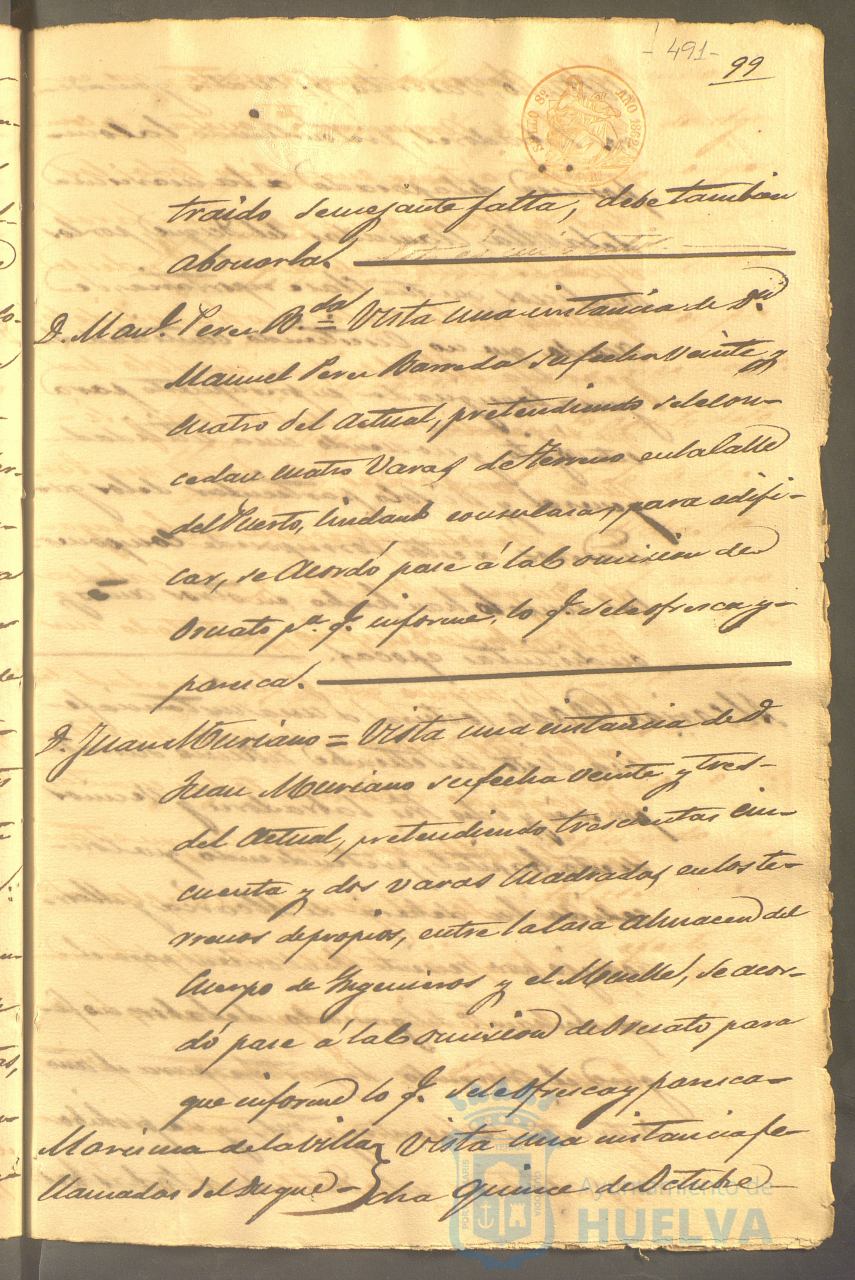 - 491 -
99
SELLO 8º AÑO 1862
traido semejante falta, debe tambien
abonarla.
D. Man.l Perez B.da = Vista una instancia de Dn
Manuel Perez Barreda su fecha Veinte y
cuatro del Actual, pretendiendo sele con-
cedan cuatro Varas de Terreno en la Calle
del Puerto, lindante con su casa, para edifi-
car, se Acordó pase á la Comision de
Ornato pa. q. informe, lo q. sele ofresca y
paresca.
D. Juan Muriano = Vista una instancia de D.
Juan Muriano su fecha veinte y tres
del Actual, pretendiendo trescientas cin-
cuenta y dos varas cuadradas en los te-
rrenos de propios, entre la Casa Almacen del
Cuerpo de Ingenieros y el Muelle, se acor-
dó pase á la Comision de Ornato para
que informe lo q. sele ofresca y paresca
Marisma de la Villa Vista una instancia fe-
llamadas del Duque cha quince de Octubre
Ayuntamiento de
HUELVA